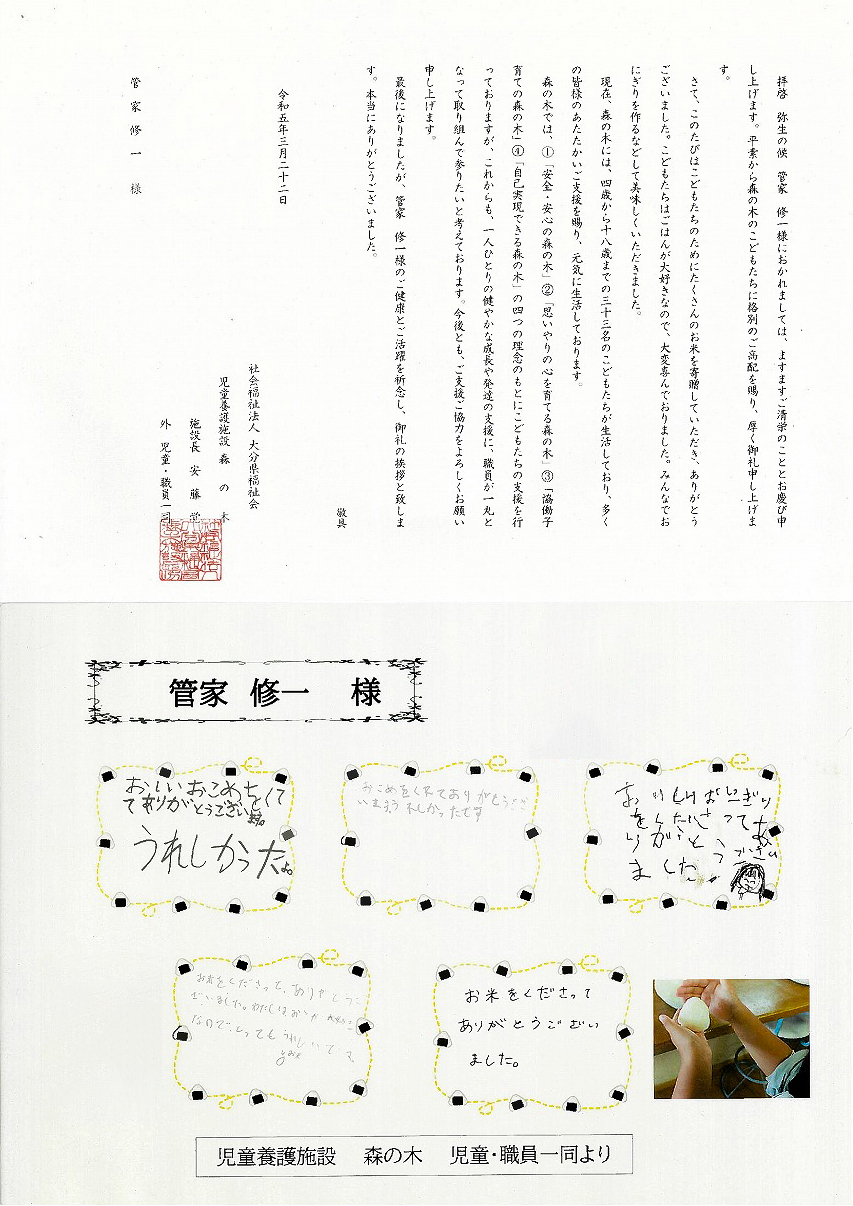 拝啓　弥生の候　管家　修一様におかれましては、ますますご清栄のこととお慶び申
し上げます。平素から森の木のこどもたちに格別のご高配を賜り、厚く御礼申し上げま
す。
さて、このたびはこどもたちのためにたくさんのお米を寄贈していただき、ありがとう
ございました。こどもたちはごはんが大好きなので、大変喜んでおりました。みんなでお
にぎりを作るなどして美味しくいただきました。
現在、森の木には、四歳から十八歳までの三十三名のこどもたちが生活しており、多く
の皆様のあたたかいご支援を賜り、元気に生活しております。
森の木では、①「安全・安心の森の木」②「思いやりの心を育てる森の木」③「協働子
育ての森の木」④「自己実現できる森の木」の四つの理念のもとにこどもたちの支援を行
っておりますが、これからも、一人ひとりの健やかな成長や発達の支援に、職員が一丸と
なって取り組んで参りたいと考えております。今後とも、ご支援ご協力をよろしくお願い
申し上げます。
最後になりましたが、管家　修一様のご健康とご活躍を祈念し、御礼の挨拶と致しま
す。本当にありがとうございました。
敬具
令和五年三月二十二日
社会福祉法人 大分県福祉会
児童養護施設 森の木
施設長 安藤
外 児童・職員一同
管家修一様
管家　修一　様
おいしいおこめをくれ
てありがとうございます。
うれしかったよ。
おこめをくれてありがとうござ
います うれしかったです
おいしいおにぎり
をくださってあ
りがとうござい
ました。
お米をくださって、ありがとうご
ざいました。わたしはおこめ 大好き
なので、とってもうれしいです。
お米をくださって
ありがとうござい
ました。
児童養護施設　森の木　児童・職員一同より